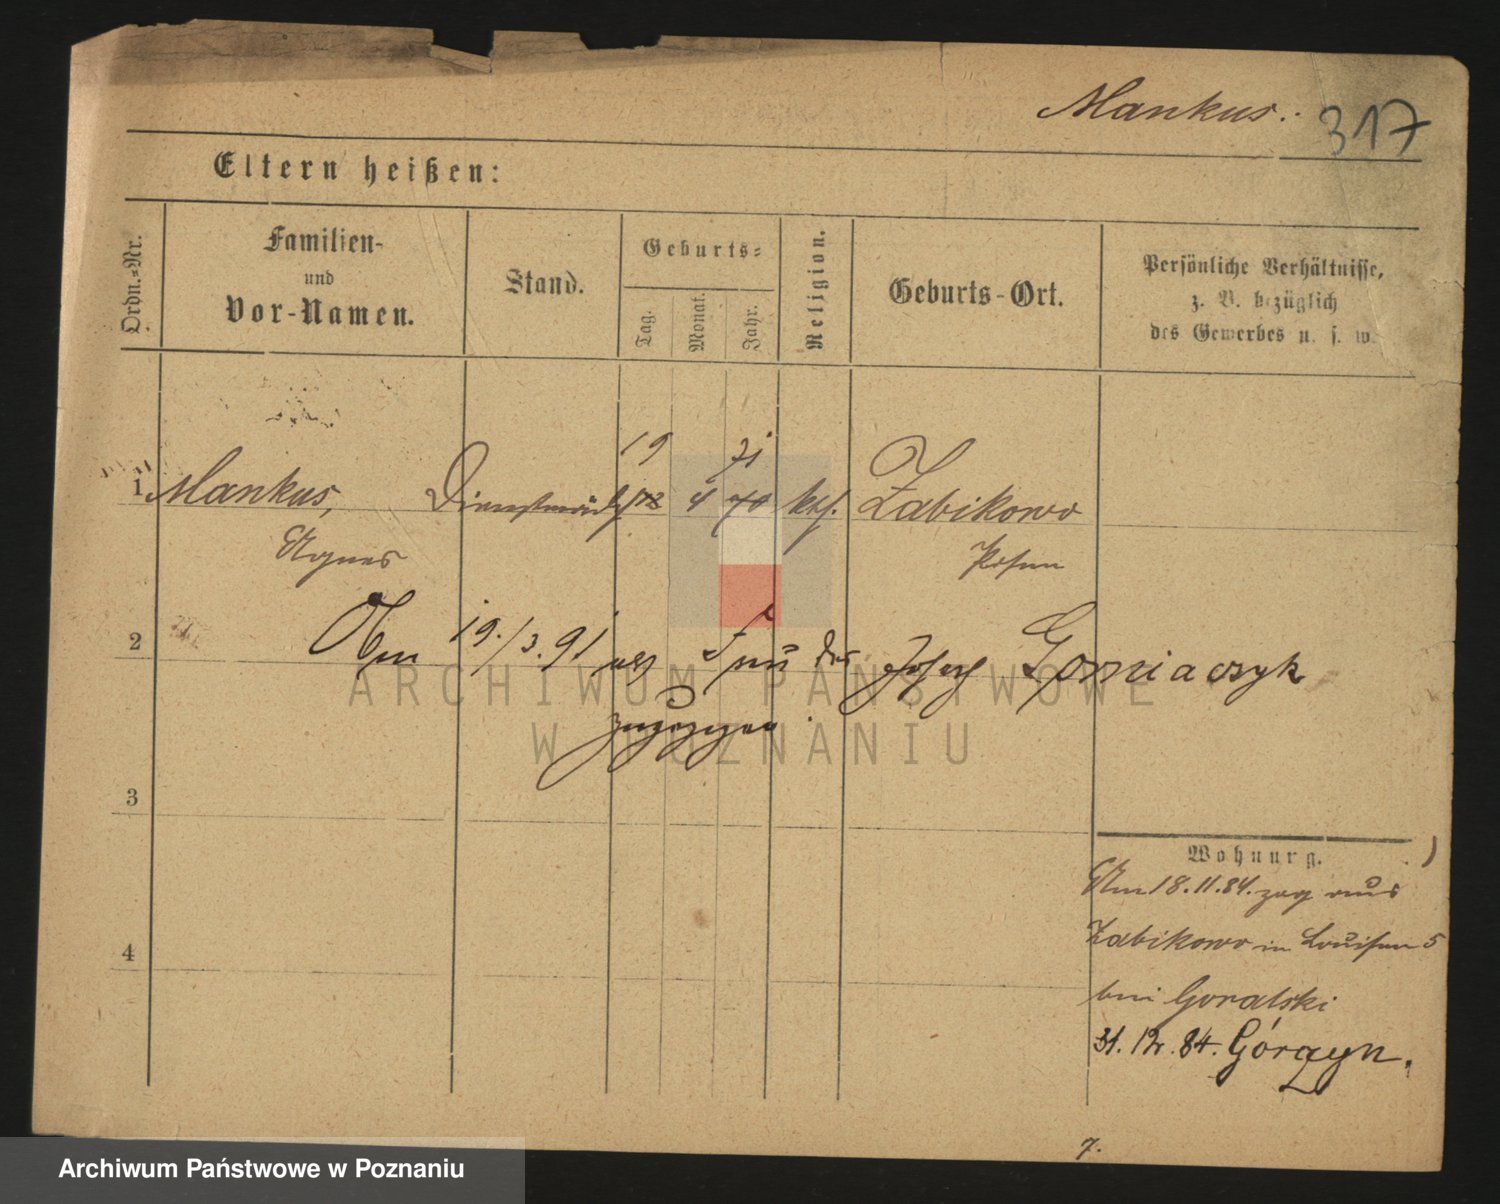 Mankus. 317
Eltern heißen:
Ordn.=Nr.
Familien-
und
Vor-Namen.
Stand.
Geburts=
Tag.
Monat.
Jahr.
Religion.
Geburts-Ort.
Persönliche Verhältnisse,
z. B. bezüglich
des Gewerbes u. s. w.
19 71
1 Mankus, Dienstmädch 18 4 70 kth. Zabikowo
Agnes Posen
2 Am 19./3.91 als Frau des Josef Gorniaczyk
zugezogen.
ARCHIWUM PAŃSTWOWE
W POZNANIU
3
Wohnung.
Am 18.11.84. zog aus
4 Zabikowo in Louisen 5
bei Goralski
31. 12. 84. Górczyn.
7.
Archiwum Państwowe w Poznaniu